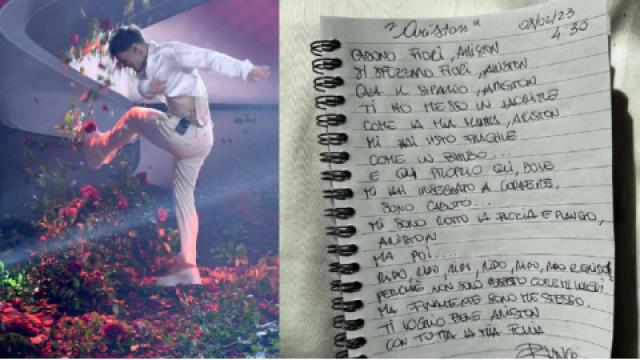 "Ariston"
08/02/23
4:30
CADONO FIORI, ARISTON
SI SPEZZANO FIORI, ARISTON
CALA IL SIPARIO, ARISTON
TI HO MESSO IN
COME LA MIA MAMMA, ARISTON
MI HAI VISTO FRAGILE
COME UN BIMBO...
E QUI PROPRIO QUI, DOVE
MI HAI INSEGNATO A
SONO CADUTO...
MI SONO ROTTO LA FACCIA E PIANGO,
ARISTON
MA POI....
RIDO, RIDO, RIDO, RIDO, RIDO, RIDO E
PERCHÈ NON SONO
MA FINALMENTE SONO ME STESSO.
TI VOGLIO BENE ARISTON
CON TUTTA LA TUA FOLLIA